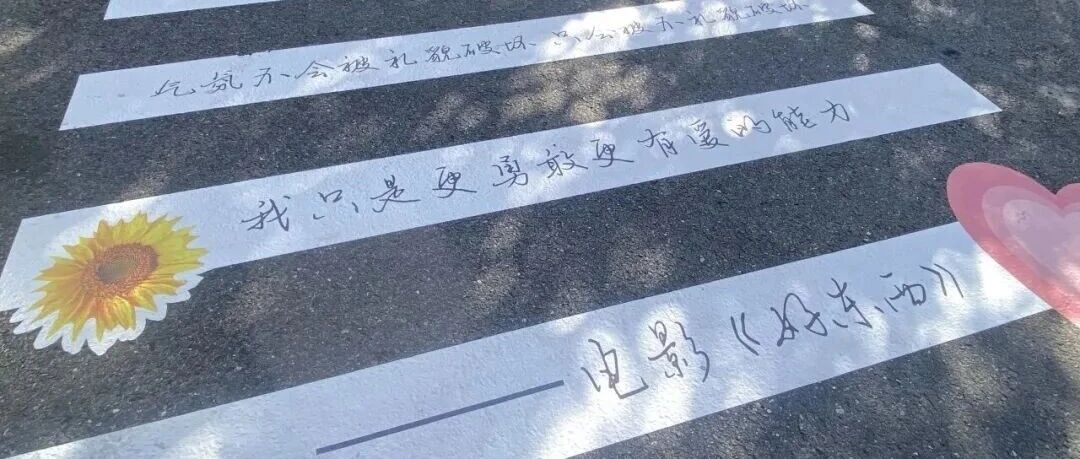 气氛不会被礼貌破坏 只会被不礼貌破坏
我只是更勇敢更有爱的能力
——电影《好东西》